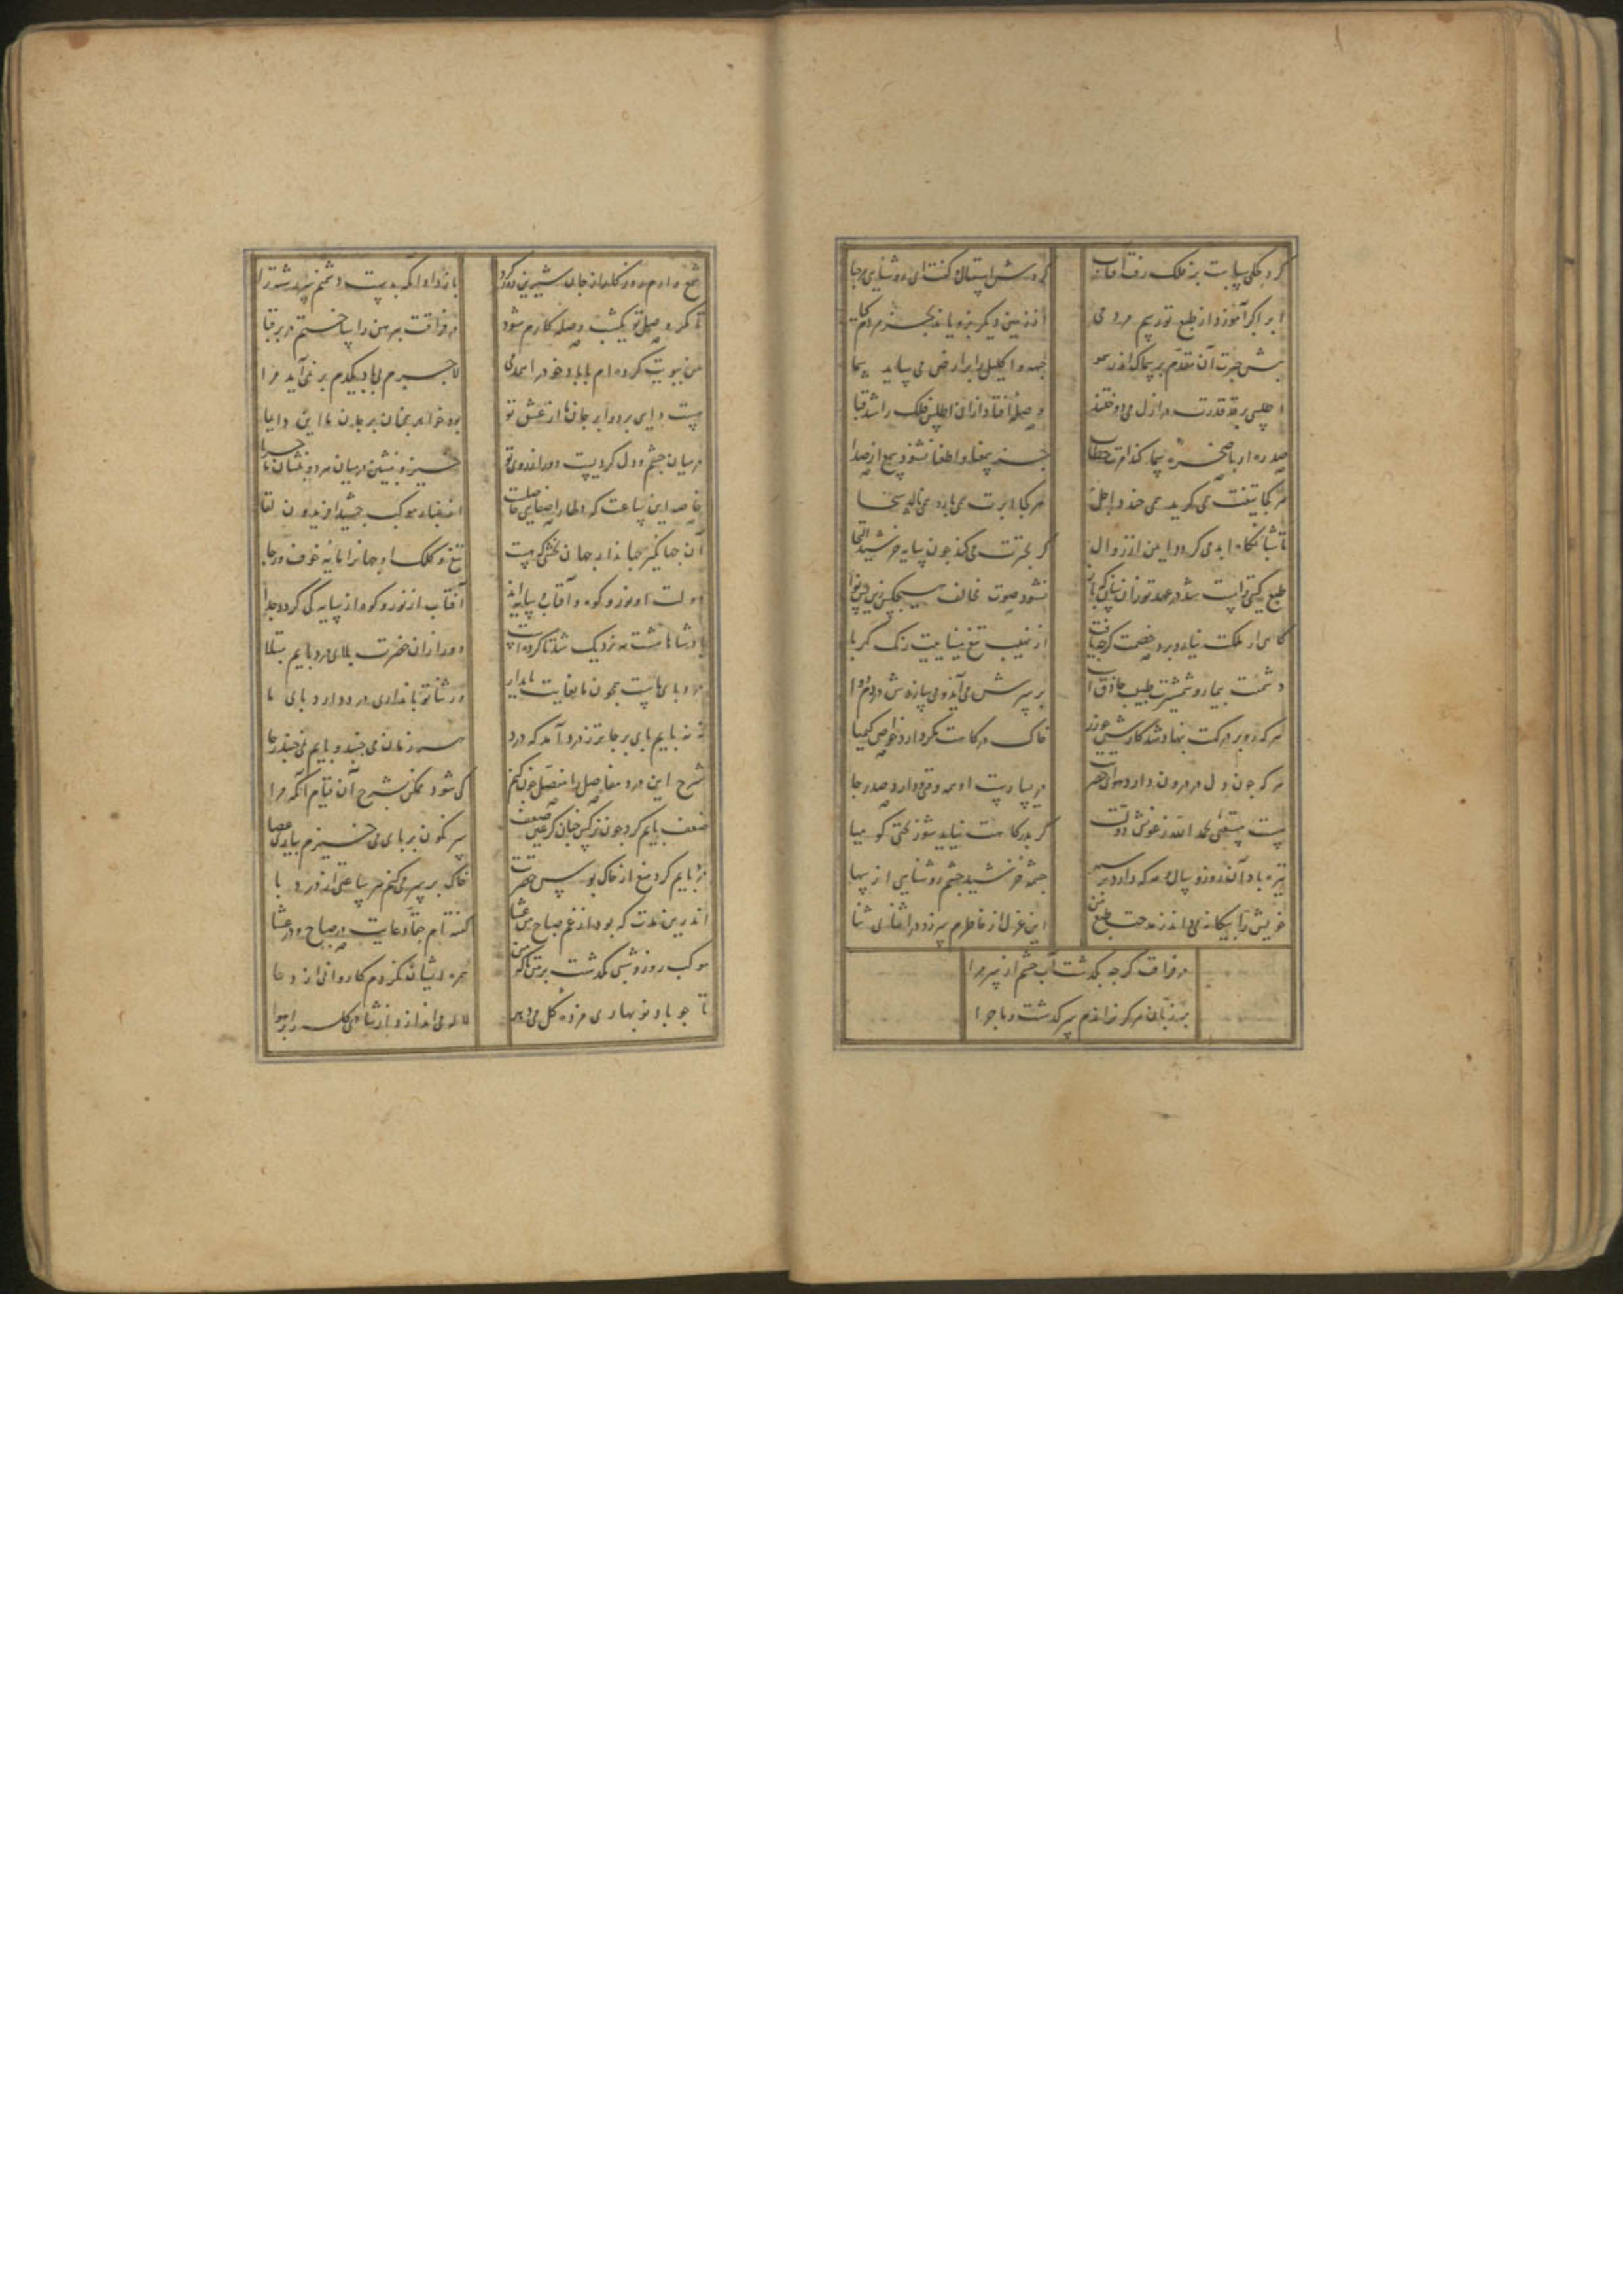 کرد چکی سایت بر فلک رفت آفتاب کردش استقبال و کفت ای روشنایی مرحبا
ابر اکر آموزد از طبع تو رسم مردمی از زمین دیکر نروید بجز مردم کیا
جبهه و اکلیل را بر ارض می ساید سما
اطلسی بر قد قدرت در ازل می دوختند وصلهٔ افتاد ازان اطلس فلک را شد قبا
صدره ار با صخره صما کند امرت خطاب جز سمعنا و اطعنا نشنود سمع از صدا
هر کجا تیغت همی کرید همی خندد اجل هر کجا ابرت همی بارد همی نالد سخا
تا شبانکاه ابد می کردد ایمن از زوال کر می کند چون سایه خرشید التجا
طبع کیتی راست شد در عهد تو زان سان که باز نشنود صوت مخالف هیچکس زین پس نوا
کاهی از ملکت نیارد برد خصمت کرچه یافت از نهیب تیغ مینایت رنک کهربا
دشمنت بیمار و شمشیرت طبیب حاذق است بر سرش می آید و می سازدش دردم دوا
هر که رو بر درکهت بنهاد شد کارش چو زر خاک درکاهت مکر دارد خواص کیمیا
هر که چون دل در درون دارد هوای حضرتت در یسارست او همه وقتی و دارد صدر جا
هست مستغنی بحمد الله ز عونش دولتت کر بدرکاهت نیاید شوربختی کو میا
تیره باد آن روز و سال و مه که دارد بر سپهر چشمه خرشید چشم روشنایی از سها
خویش را بیکانه می دارد ز مدحت طبع من این غزل از خاطرم سر زد در اثنای ثنا
در فراقت کر چه بکذشت آب چشم از سر مرا
بر زبان هرکز نراندم سرکذشت و ماجرا
شمع وارم روزکار از جان شیرین دور کرد باز داد اکه بدست دشمنم سررشته را
تا مکر وصل تو یکشب وصله کارم شود در فراقت پیرهن را ساختم در بر قبا
من ببویت کرده ام با باد خو در همدمی لاجرم بی باد یکدم بر نمی آید مرا
هست رای بر دوا بر جانها از عشق تو بود خواهد همچنان بر جان ما این رایها
در میان چشم و دل کردیست دور از روی تو خیز و بنشین در میان هر دو بنشان ماجرا
خاصه این ساعت که دلها را صفایی حاصلست از غبار موکب جمشید افریدون لقا
آن جهانکیر جهاندار جهان بخشی که هست تیغ و کلک او جهانرا مایه خوف و رجا
دولت او نور و کوه و آفتاب و سایه اند آفتاب از نور و کوه از سایه کی کردد جدا
پادشاها هشت مه نزدیک شد تا کرده است دور ازان حضرت بلای درد پایم مبتلا
درد پای ماست همچون ما بغایت پایدار ور شانی تو پا نداری درد دارد پای ما
نه نه پایم پای برجا تر ز درد آمد که درد هر زمان می جنبد و پایم نمی جنبد ز جا
شرح این درد مفاصل را مفصل چون کنم کی شود ممکن بشرح آن قیام آنکه مرا
ضعف پایم کرد چون نرکس چنان کز عین ضعف سرنکون بر پای می خیزم بیاری عصا
درد پایم کرد منع از خاک بوس حضرتت خاک بر سر می کنم هر ساعتی از درد پا
اندرین مدت که بود از غم صباح من عشا کفته ام حقا دعایت در صباح و در عشا
موکب روز و شبی نکذشت بر من تا که من همره ایشان نکردم کاروانی از دعا
تا چو باد نوبهاری مژده کل می دهد لاله می اندازد از شادی کله را بر هوا